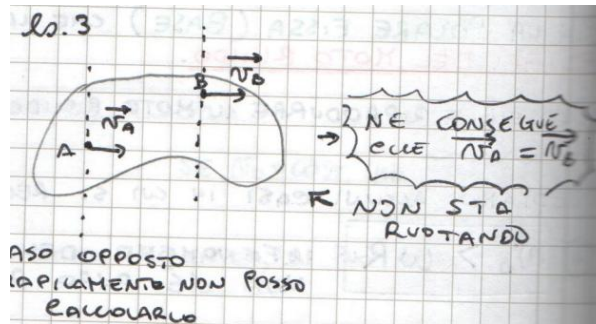 es. 3
B
v_B
v_A
A
→ NE CONSEGUE
CHE v_A = v_B
NON STA
RUOTANDO
ASO OPPOSTO
RAPICAMENTE NON POSSO
CALCOLARLO